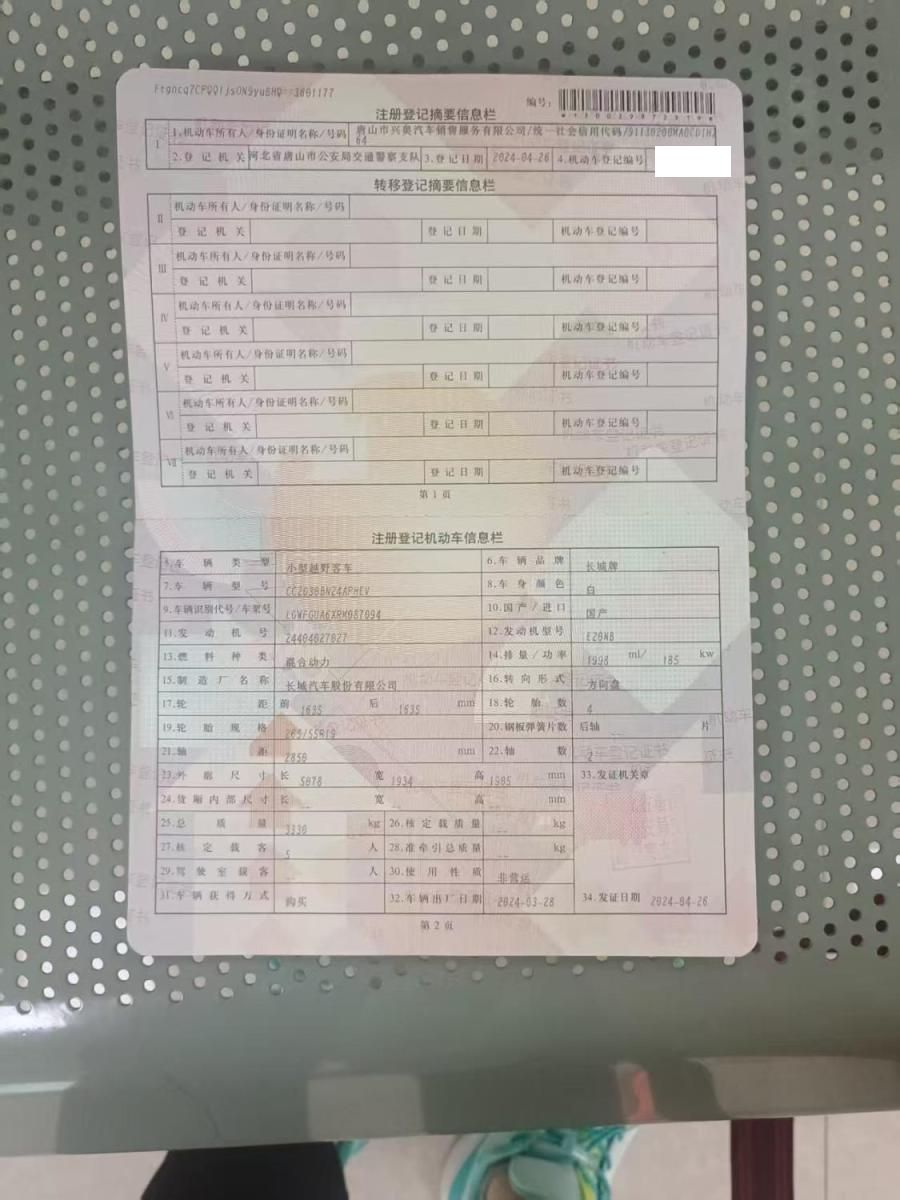 Ftgncq7CPQQIjsON9yu8HQ==3891177
编号:
注册登记摘要信息栏
I 1.机动车所有人/身份证明名称/号码 唐山市兴奥汽车销售服务有限公司/统一社会信用代码/91130200MA0CD1HJ
64
2.登记机关 河北省唐山市公安局交通警察支队 3.登记日期 2024-04-26 4.机动车登记编号
转移登记摘要信息栏
II 机动车所有人/身份证明名称/号码
登记机关 登记日期 机动车登记编号
III 机动车所有人/身份证明名称/号码
登记机关 登记日期 机动车登记编号
IV 机动车所有人/身份证明名称/号码
登记机关 登记日期 机动车登记编号
V 机动车所有人/身份证明名称/号码
登记机关 登记日期 机动车登记编号
VI 机动车所有人/身份证明名称/号码
登记机关 登记日期 机动车登记编号
VII 机动车所有人/身份证明名称/号码
登记机关 登记日期 机动车登记编号
第 1 页
注册登记机动车信息栏
5.车辆类型 小型越野客车 6.车辆品牌 长城牌
7.车辆型号 CC2030BN24APHEV 8.车身颜色 白
9.车辆识别代号/车架号 LGWFGUA6XRM087094 10.国产/进口 国产
11.发动机号 24404027827 12.发动机型号 E20NB
13.燃料种类 混合动力 14.排量/功率 1998 ml/ 185 kw
15.制造厂名称 长城汽车股份有限公司 16.转向形式 方向盘
17.轮距 前 1635 后 1635 mm 18.轮胎数 4
19.轮胎规格 265/55R19 20.钢板弹簧片数 后轴 -- 片
21.轴距 2850 mm 22.轴数 2
23.外廓尺寸 长 5078 宽 1934 高 1905 mm 33.发证机关章
24.货厢内部尺寸 长 -- 宽 -- 高 -- mm
25.总质量 3330 kg 26.核定载质量 -- kg
27.核定载客 5 人 28.准牵引总质量 -- kg
29.驾驶室载客 -- 人 30.使用性质 非营运
31.车辆获得方式 购买 32.车辆出厂日期 2024-03-28 34.发证日期 2024-04-26
第 2 页